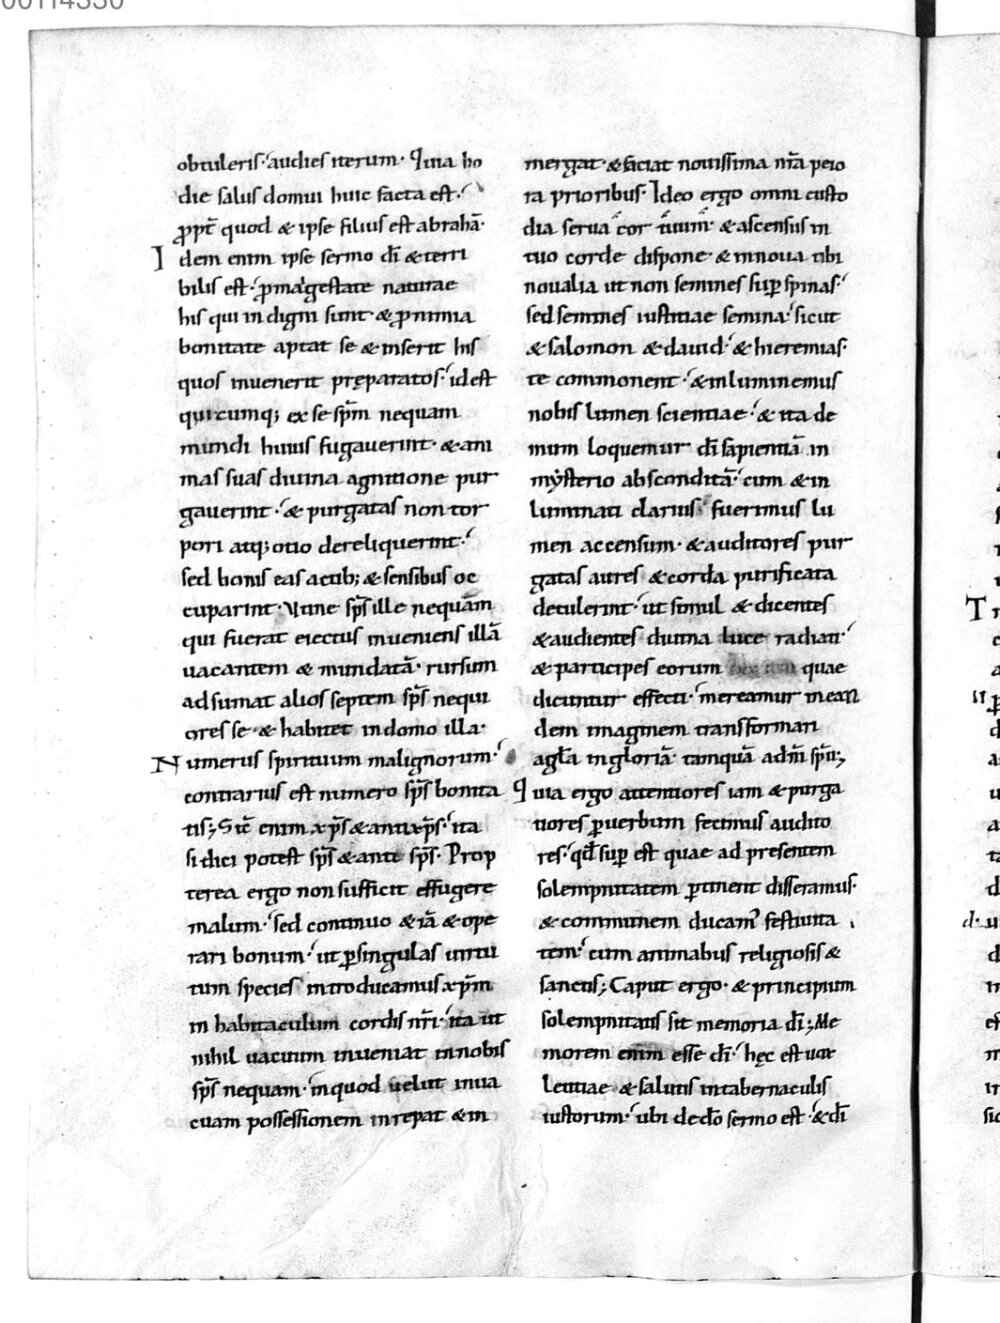 00114330
obtuleris· audies iterum· Quia ho
die salus domui huic facta est·
ꝓpt̄ quod & ipse filius est abrahā·
Idem enim ipse sermo dī & terri
bilis est· ꝓ magestate naturae
his qui indigni sunt· & ꝓ nimia
bonitate aptat se & inserit his
quos inuenerit pręparatos· id est
quicumq; ex se sp̄m nequam
mundi huius fugauerint· & ani
mas suas diuina agnitione pur
gauerint· & purgatas non tor
pori atq; otio dereliquerint·
sed bonis eas actib; & sensibus oc
cuparint· Nunc sp̄s ille nequam
qui fuerat eiectus inueniens illā
uacantem & mundatā· rursum
adsumat alios septem sp̄s nequi
ores se· & habitet in domo illa·
Numerus spirituum malignorum·
contrarius est numero sp̄s bonita
tis; Sic̄ enim xp̄s & antixp̄s· ita
si dici potest sp̄s & anti sp̄s· Prop
terea ergo non sufficit effugere
malum· sed continuo & iā & ope
rari bonum· ut ꝑ singulas uirtu
tum species introducamus xp̄m
in habitaculum cordis nr̄i· ita ut
nihil uacuum inueniat in nobis
sp̄s nequam· in quod uelut in ua
cuam possessionem inrepat & in
mergat· & faciat nouissima nr̄a peio
ra prioribus· Ideo ergo omni custo
dia serua cor tuum· & ascensus in
tuo corde dispone· & innoua tibi
noualia ut non semines suꝑ spinas·
sed semines iustitiae semina· sicut
& salomon & dauid· & hieremias·
te commonent· & inluminemus
nobis lumen scientiae· & ita de
mum loquemur dī sapientiā in
mẏsterio absconditā· cum & in
luminati clarius fuerimus lu
men accensum· & auditores pur
gatas aures & corda purificata
detulerint· ut simul & dicentes
& audientes diuina luce radiati·
& participes eorum quae
dicuntur effecti· mereamur in ean
dem imaginem transformari
a gła in gloriā· tamquā a dn̄i sp̄u;
Quia ergo attentiores iam & purga
tiores ꝑ uerbum fecimus audito
res· qđ suꝑ est quae ad presentem
solempnitatem ꝑtinent disseramus·
& communem ducam᾿ festiuita
tem· cum animabus religiosis &
sanctis; Caput ergo· & principium
solempnitatis sit memoria dī; Me
morem enim esse dī· hęc est uox
letitiae & salutis in tabernaculis
iustorum· ubi de dō sermo est· & dī